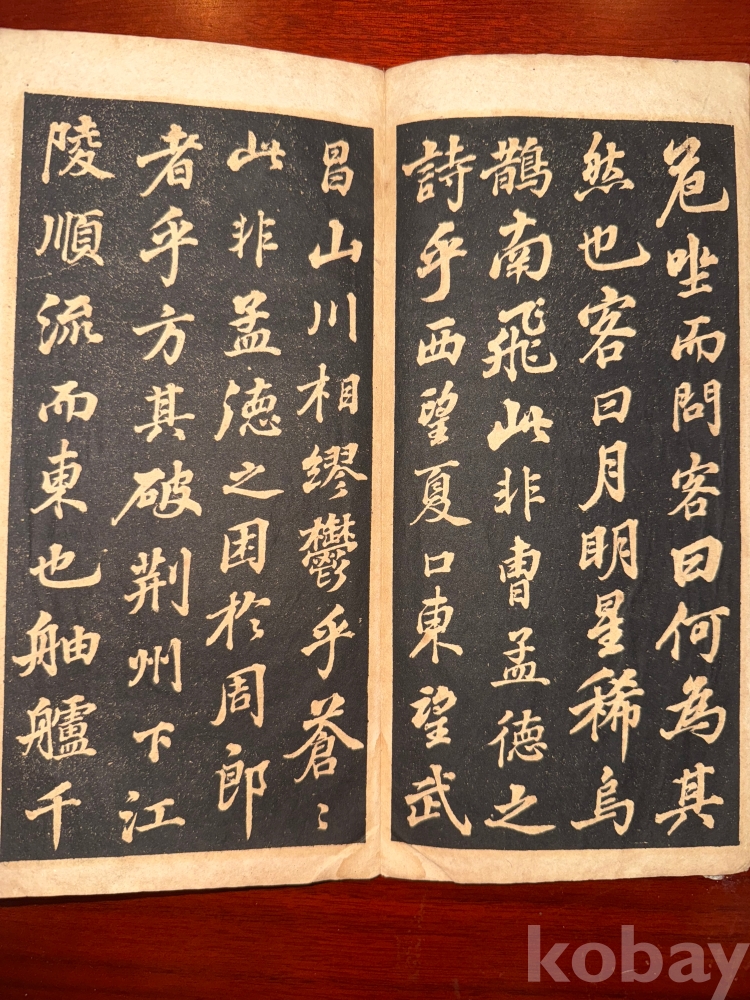 危坐而問客曰何為其
然也客曰月明星稀烏
鵲南飛此非曹孟德之
詩乎西望夏口東望武
昌山川相繆鬱乎蒼〻
此非孟德之困於周郎
者乎方其破荊州下江
陵順流而東也舳艫千
kobay